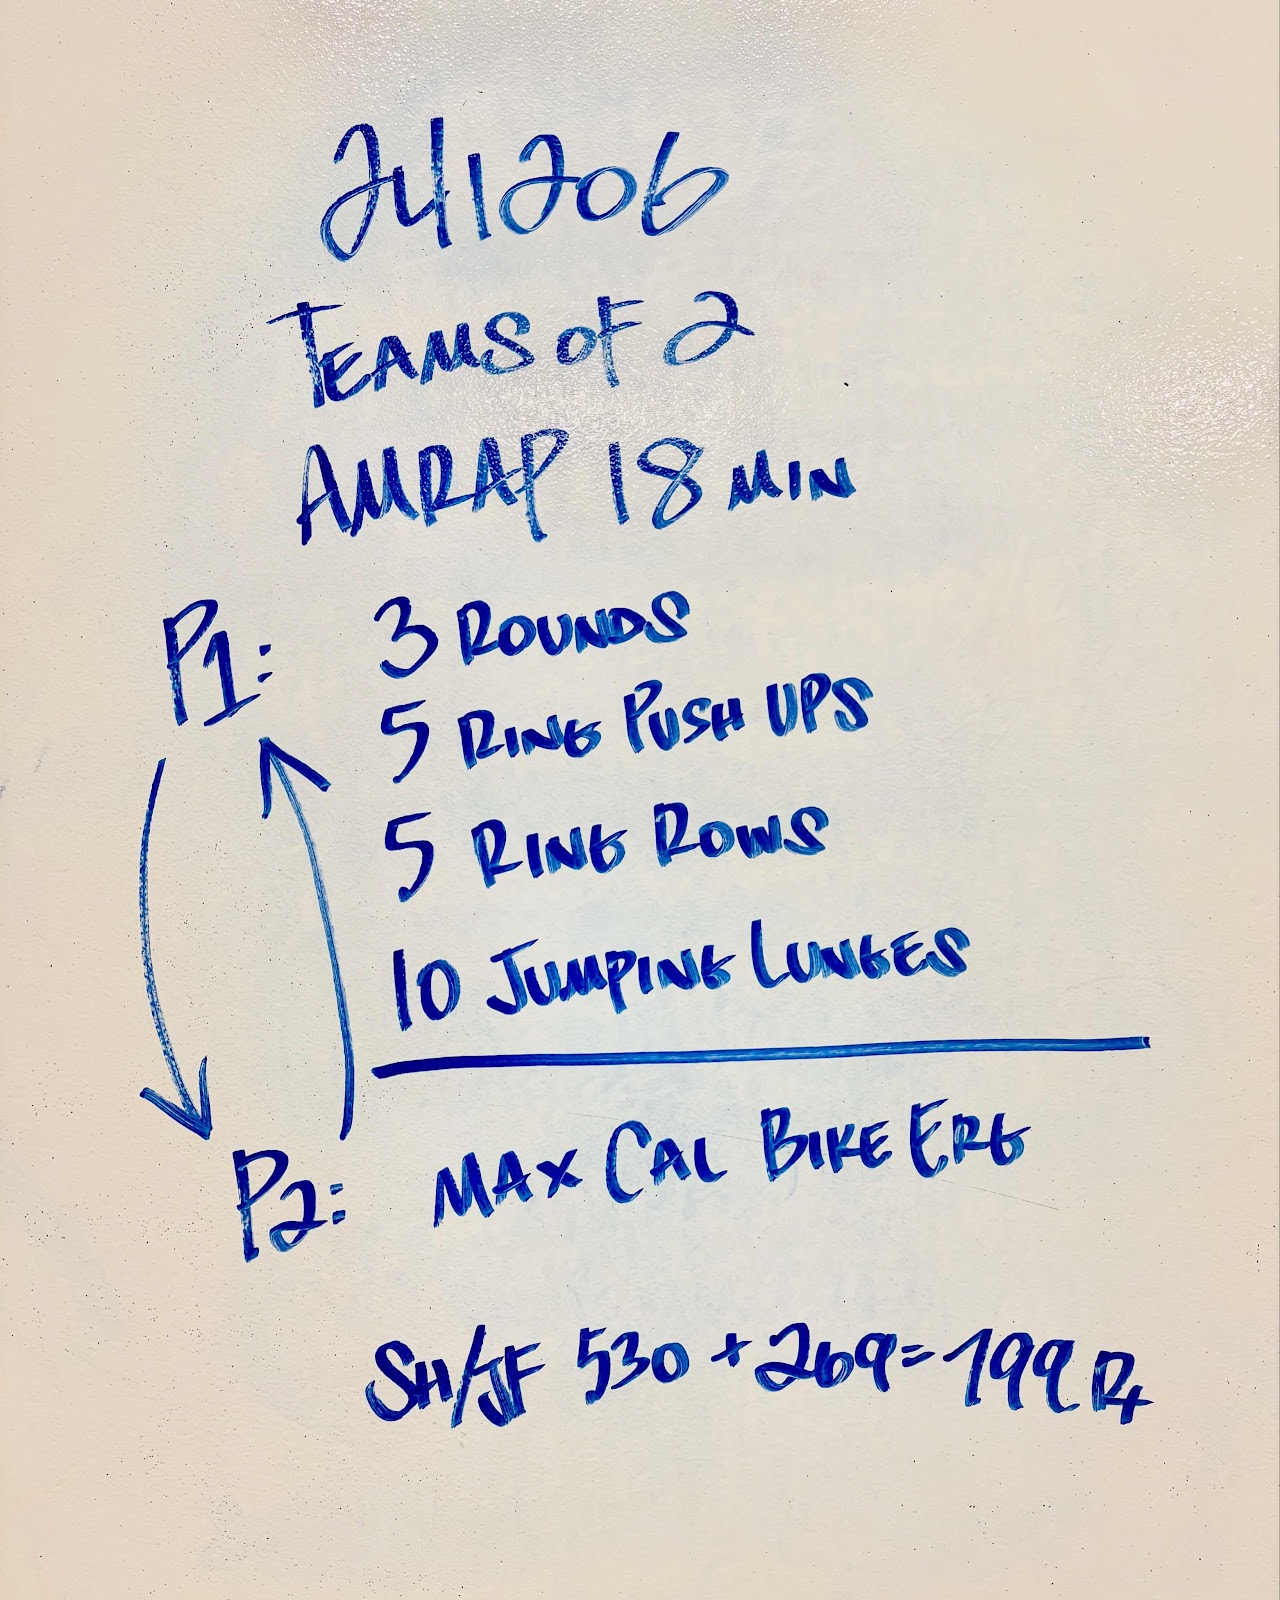 241206
TEAMS OF 2
AMRAP 18 MIN
P1: 3 ROUNDS
5 RING PUSH UPS
5 RING ROWS
10 JUMPING LUNGES
P2: MAX CAL BIKE ERG
SH/JF 530 + 269 = 799 Rx